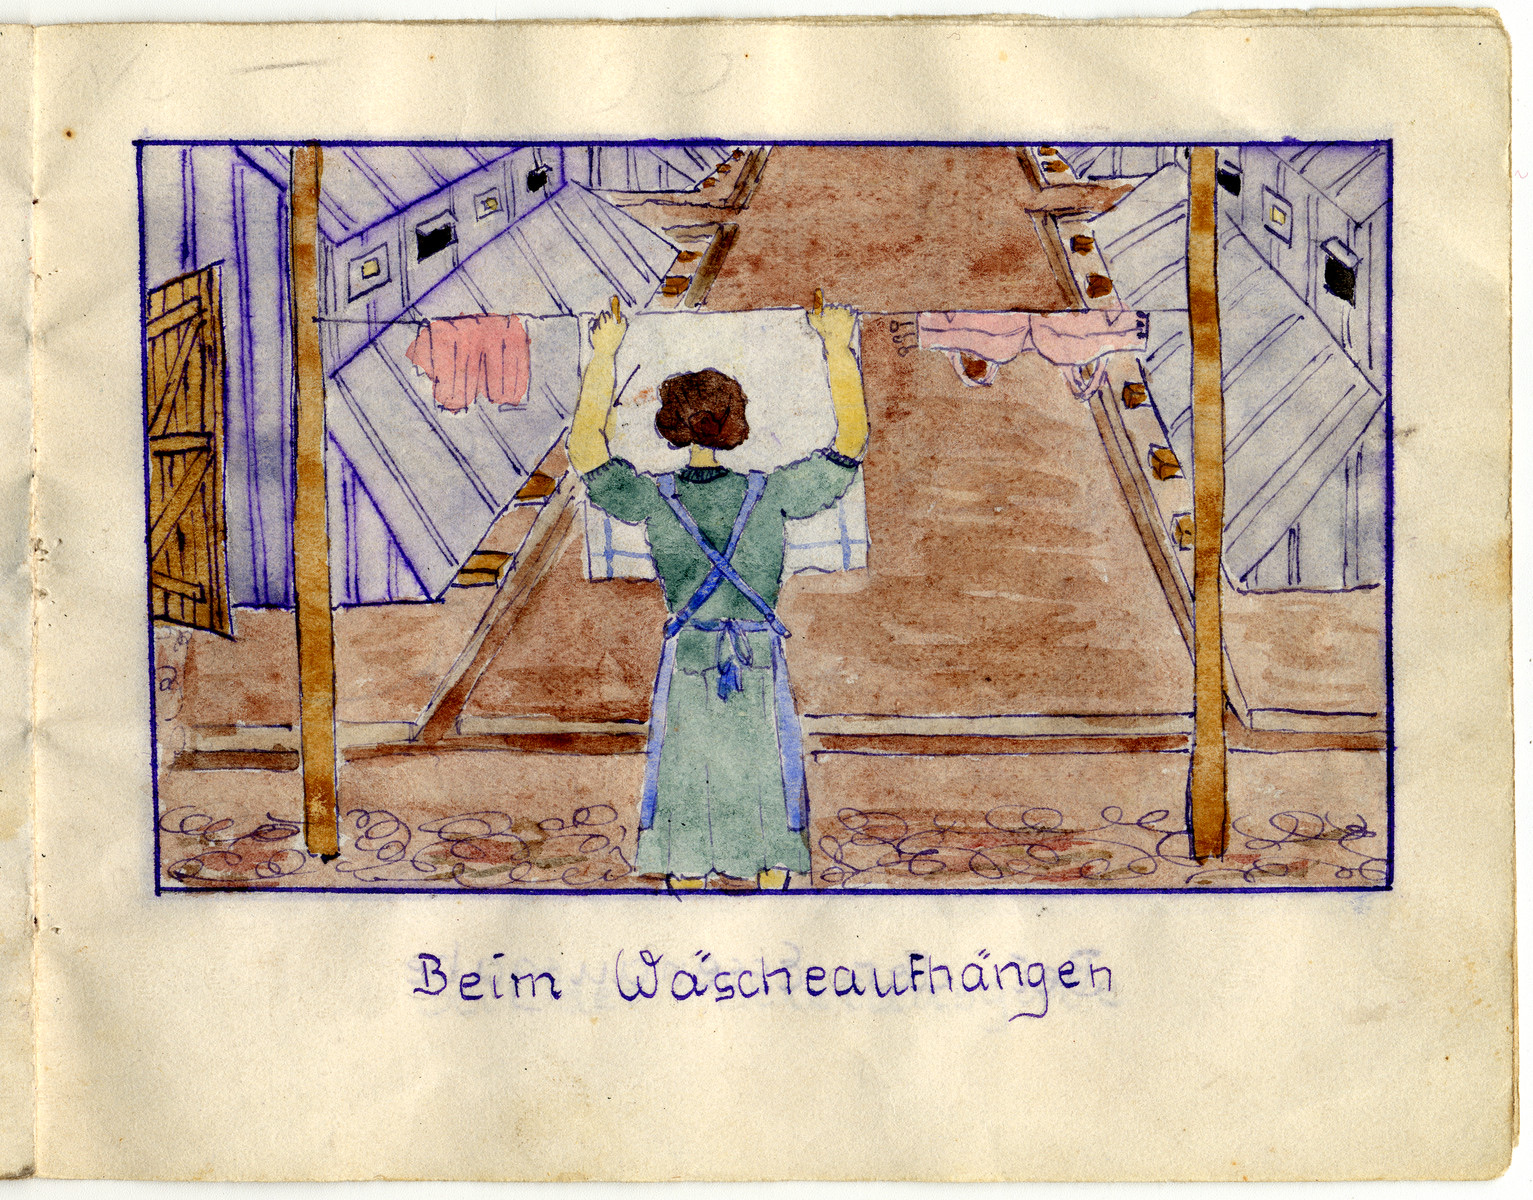 Beim Wäscheaufhängen